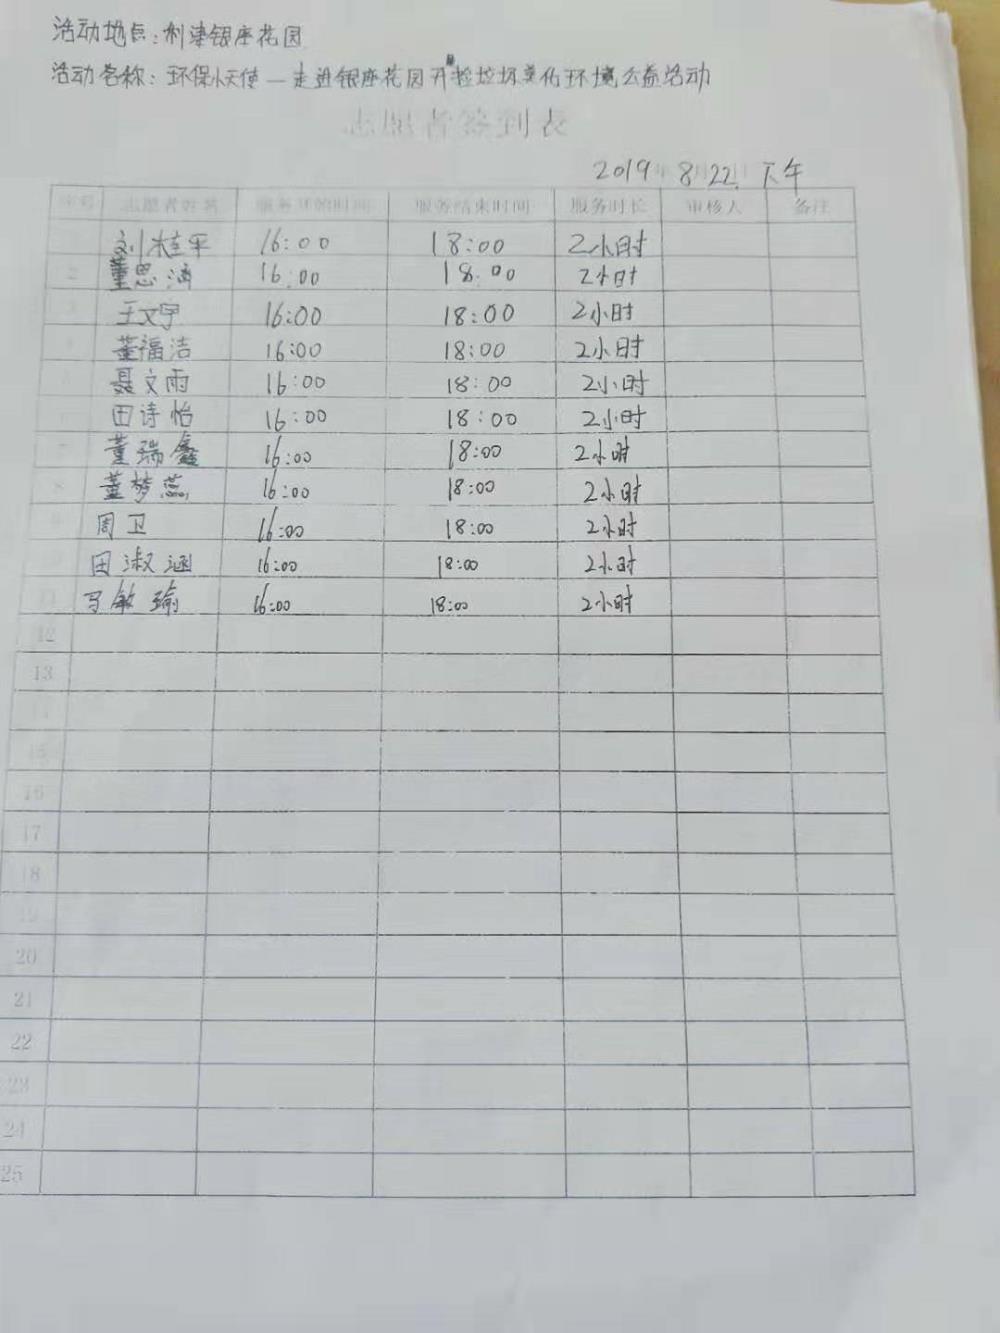 活动地点：利津银座花园
活动名称：环保小天使—走进银座花园开捡垃圾美化环境公益活动
志愿者签到表
2019年8月22日 下午
序号 志愿者姓名 服务开始时间 服务结束时间 服务时长 审核人 备注
1 刘桂平 16:00 18:00 2小时
2 董思涵 16:00 18:00 2小时
3 王文宇 16:00 18:00 2小时
4 董福洁 16:00 18:00 2小时
5 聂文雨 16:00 18:00 2小时
6 田诗怡 16:00 18:00 2小时
7 董瑞鑫 16:00 18:00 2小时
8 董梦蕊 16:00 18:00 2小时
9 周卫 16:00 18:00 2小时
10 田淑涵 16:00 18:00 2小时
11 马敏瑜 16:00 18:00 2小时
12
13
14
15
16
17
18
19
20
21
22
23
24
25